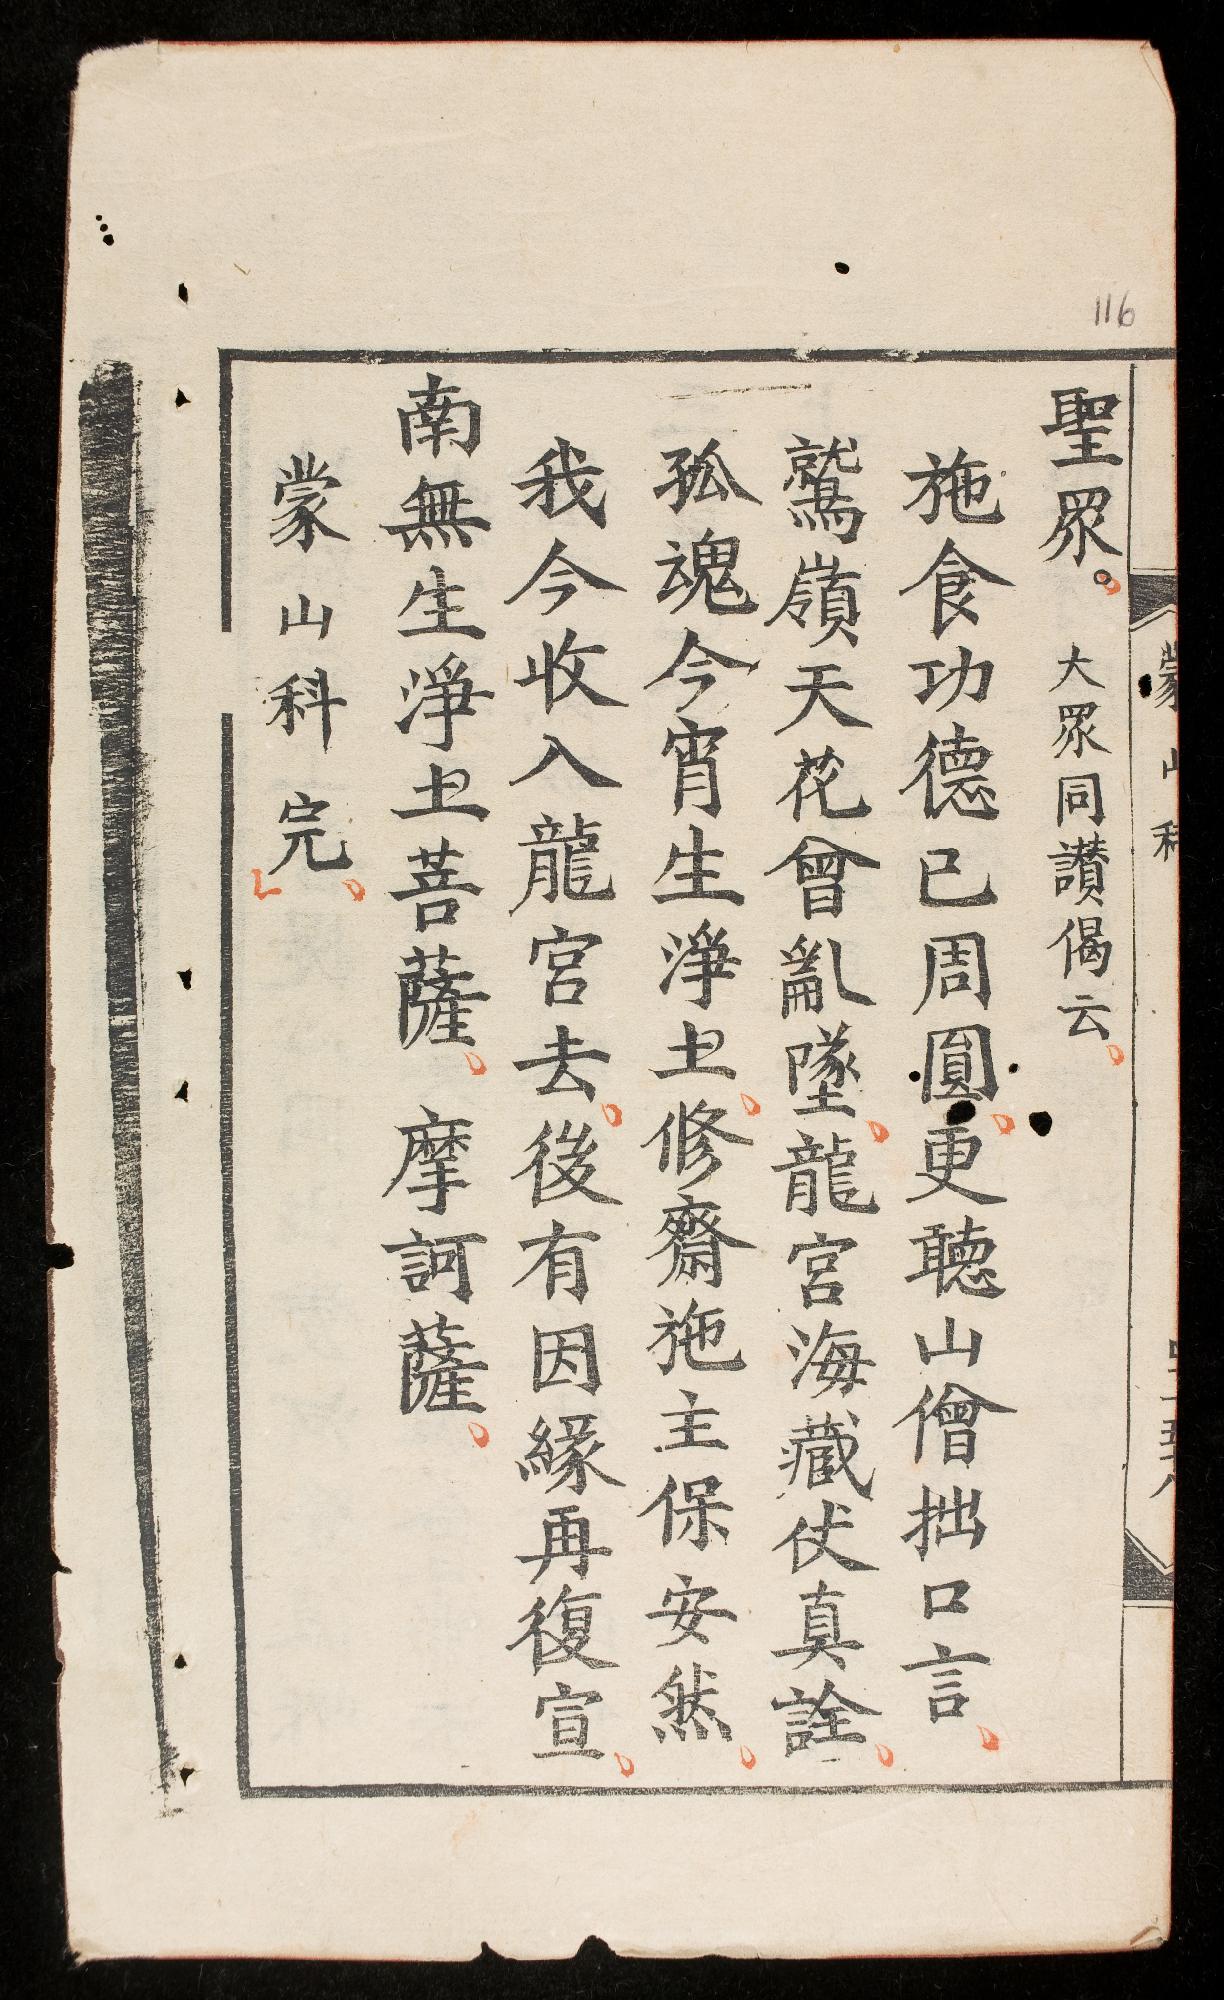 116
聖眾。大眾同讃偈云、
施食功德已周圓、更聽山僧拙口言、
鷲嶺天花曾亂墜、龍宮海藏伏真詮、
孤魂今宵生淨土、修齋施主保安然、
我今收入龍宮去、後有因緣再復宣、
南無生淨土菩薩、摩訶薩、
蒙山科完、
蒙山科